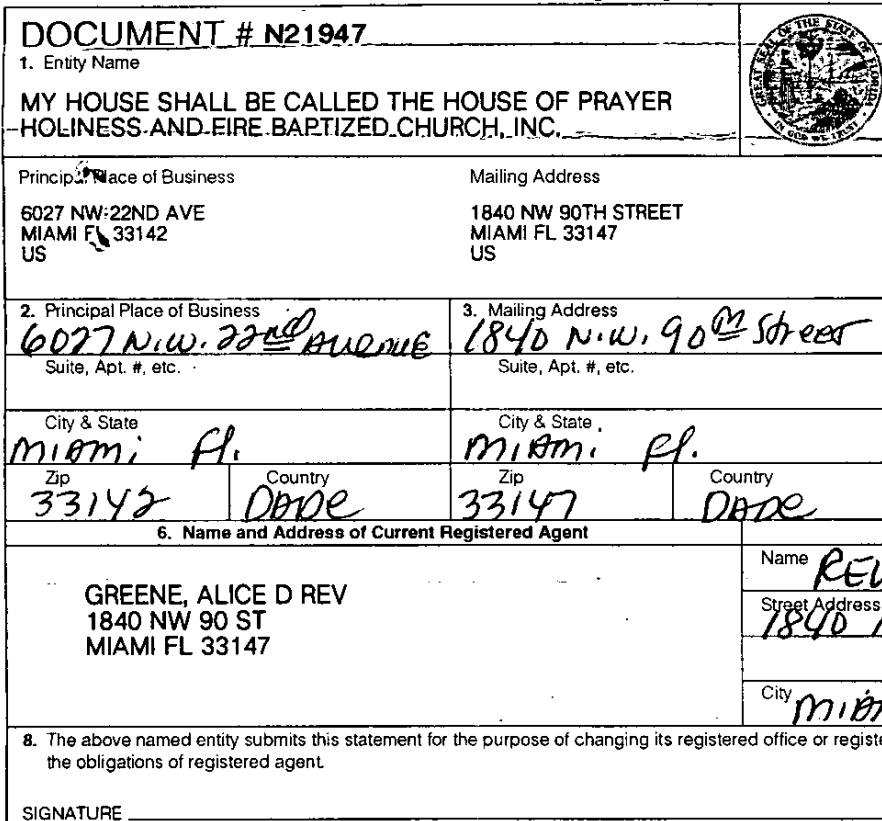 DOCUMENT # N21947
1. Entity Name
MY HOUSE SHALL BE CALLED THE HOUSE OF PRAYER
HOLINESS AND FIRE BAPTIZED CHURCH, INC.
GREAT SEAL OF THE STATE OF FLORIDA
IN GOD WE TRUST
Principal Place of Business
6027 NW 22ND AVE
MIAMI FL 33142
US
Mailing Address
1840 NW 90TH STREET
MIAMI FL 33147
US
2. Principal Place of Business
6027 N.W. 22nd Avenue
Suite, Apt. #, etc.
City & State
Miami Fl.
Zip
33142
Country
DADE
3. Mailing Address
1840 N.W. 90th Street
Suite, Apt. #, etc.
City & State
Miami Fl.
Zip
33147
Country
DADE
6. Name and Address of Current Registered Agent
GREENE, ALICE D REV
1840 NW 90 ST
MIAMI FL 33147
Name REV
Street Address
1840
City MIA
8. The above named entity submits this statement for the purpose of changing its registered office or registe
the obligations of registered agent.
SIGNATURE